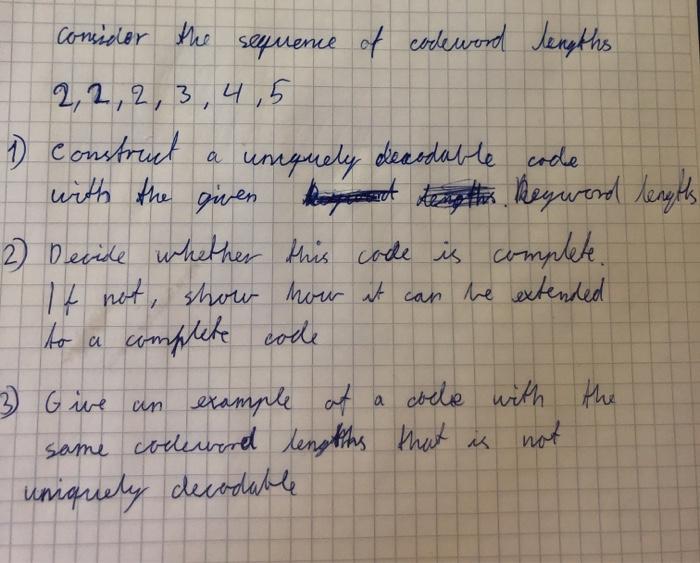 Consider the sequence of codeword lengths
2, 2, 2, 3, 4, 5
1) Construct a uniquely decodable code
with the given Keyword lengths
2) Decide whether this code is complete.
If not, show how it can be extended
to a complete code
3) Give an example of a code with the
same codeword lengths that is not
uniquely decodable